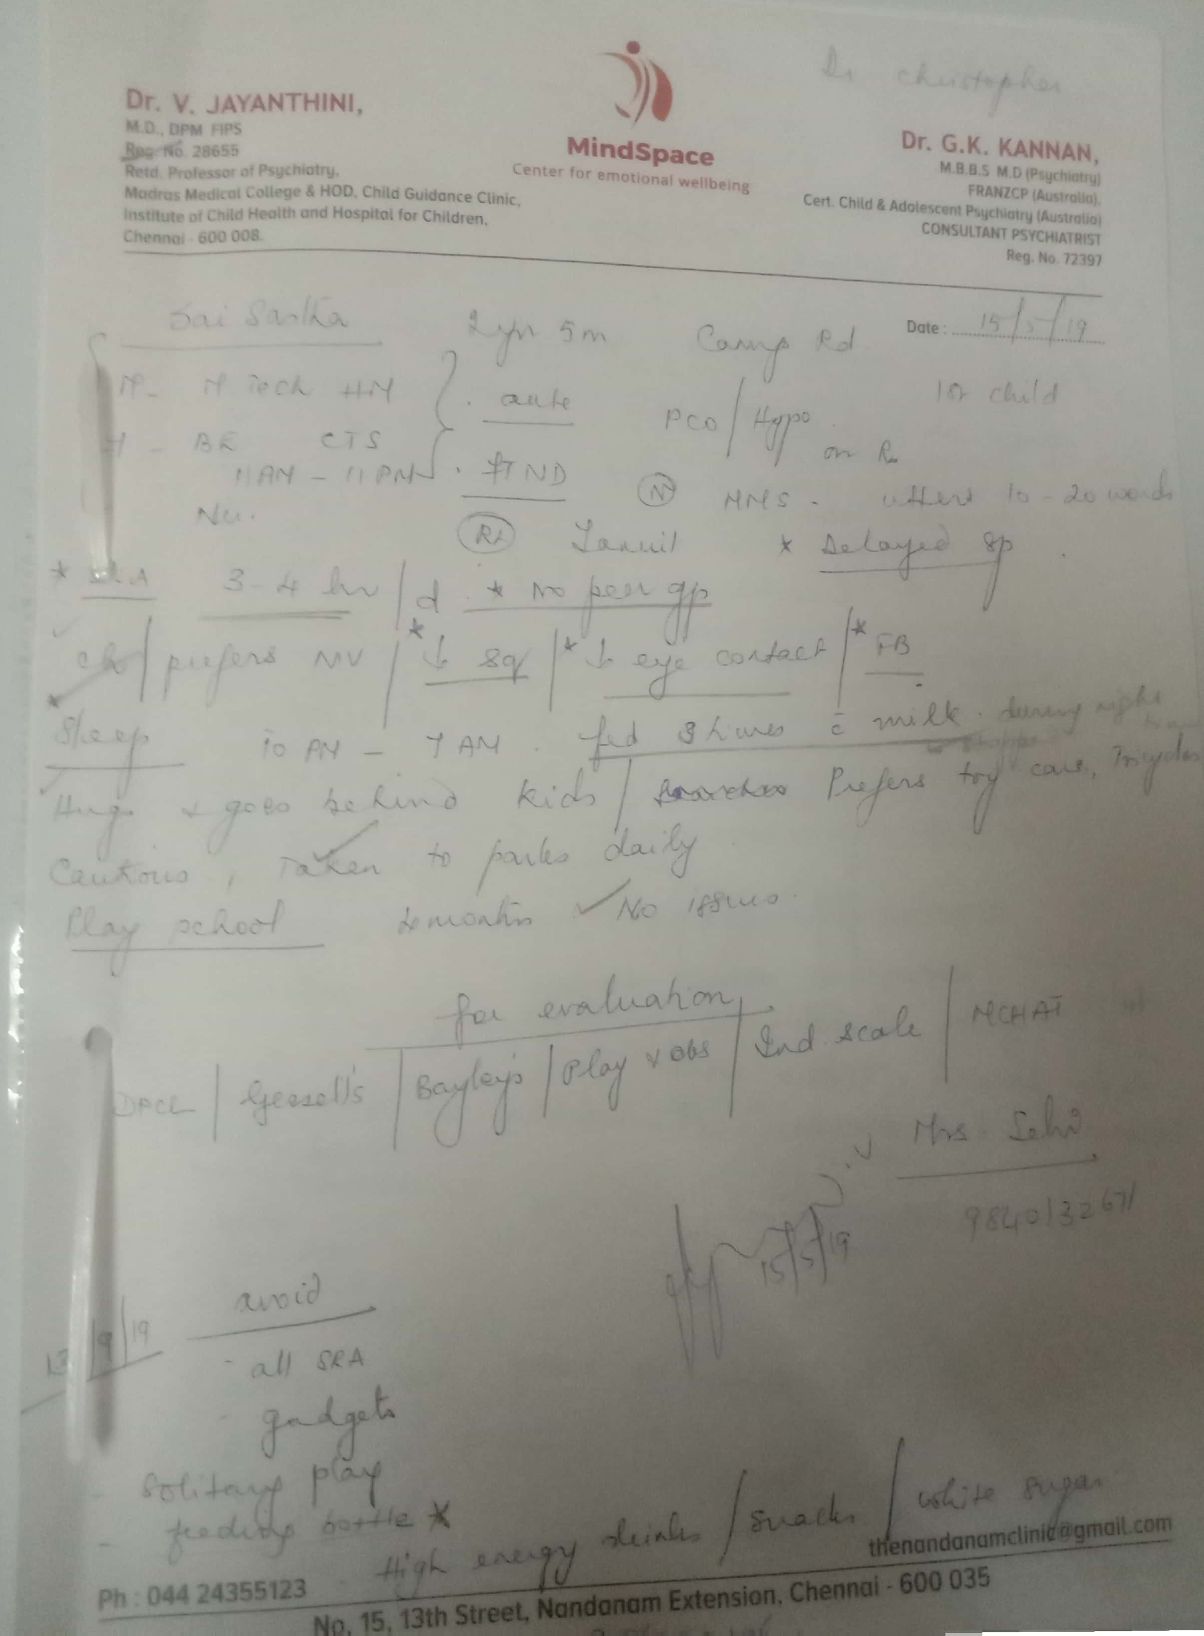 Dr christopher
Dr. V. JAYANTHINI,
M.D., DPM FIPS
Reg. No. 28655
Retd. Professor of Psychiatry,
Madras Medical College & HOD, Child Guidance Clinic,
Institute of Child Health and Hospital for Children,
Chennai - 600 008.
MindSpace
Center for emotional wellbeing
Dr. G.K. KANNAN,
M.B.B.S M.D (Psychiatry)
FRANZCP (Australia),
Cert. Child & Adolescent Psychiatry (Australia)
CONSULTANT PSYCHIATRIST
Reg. No. 72397
Sai 2 yr 5m Camp Rd. Date : 15/5/19
M - M Tech HM PCO / Hypo 1st child
BE CTS on Rx
11 AM - 11 PM . FTND (N) MMS - utters 10 - 20 words
Nu. * Delayed sp.
* SRA 3-4 hr/d * No peer gp
prefers NV / * ↓ sq / * ↓ eye contact / * FB
* Sleep 10 PM - 7 AM . fed 3 times c̄ milk. during night
Hugs & goes behind kids / Prefers toy cars, Tricycles
Cautious, Taken to parks daily
Play school 2 months ✓ No issues.
for evaluation
DPCL / Gessell's / Bayley's / Play & obs / Ind. scale / MCHAT
Mrs. Selvi
15/5/19
13/9/19 avoid
- all SRA
- gadgets
- Solitary play
- feeding bottle *
- High energy drinks / Snacks / white sugar
thenandanamclinic@gmail.com
Ph : 044 24355123
No, 15, 13th Street, Nandanam Extension, Chennai - 600 035